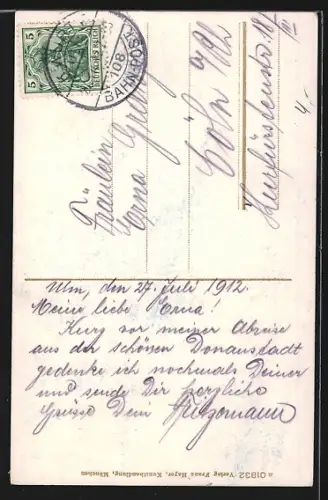 5
DEUTSCHES REICH
108
BAHNPOST
Fräulein
Erna
Cöln a/Rh
Kurfürstenstr. 18
III
4.-
Ulm, den 27. Juli 1912.
Meine liebe Erna!
Kurz vor meiner Abreise
aus der schönen Donaustadt
gedenke ich nochmals Deiner
und sende Dir herzliche
Grüsse Dein
01932 Verlag Franz Mayer, Kunsthandlung, München